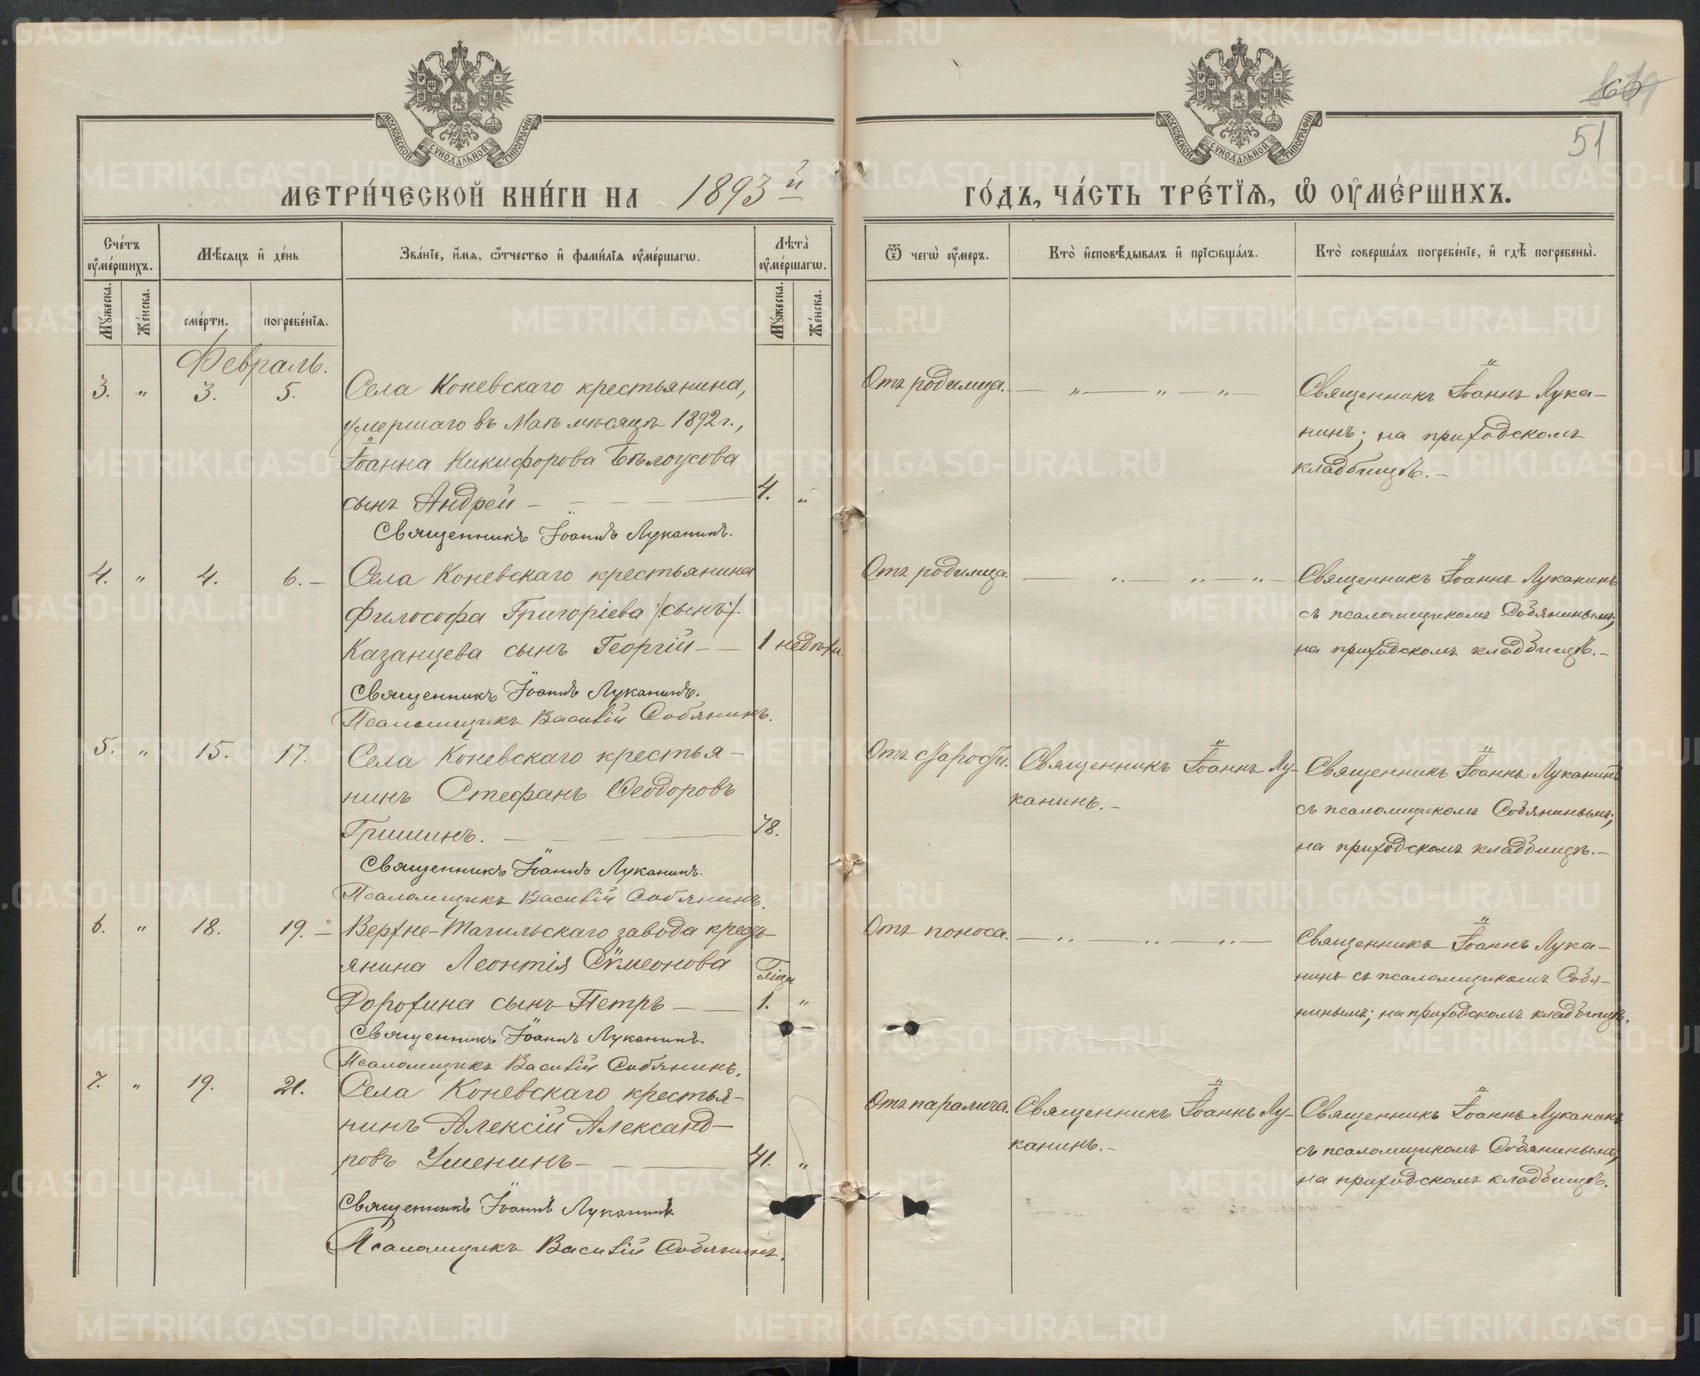 METRIKI.GASO-URAL.RU
МОСКОВСКОЙ СѴНОДАЛЬНОЙ ТИПОГРАФІИ
МОСКОВСКОЙ СѴНОДАЛЬНОЙ ТИПОГРАФІИ
51
МЕТРИ́ЧЕСКОЙ КНИ́ГИ НА 1893й
ГО́ДЪ, ЧА́СТЬ ТРЕ́ТЇѦ, Ѡ҆ ОУ҆МЕ́РШИХЪ.
Сче́тъ оу҆ме́ршихъ.
Мѣ́сѧцъ и҆ де́нь
Зва́нїе, и҆́мѧ, ѻ҆́тчество и҆ фами́лїѧ оу҆ме́ршагѡ.
Лѣ́та оу҆ме́ршагѡ.
Ѿ чегѡ̀ оу҆́меръ.
Кто̀ и҆сповѣ́дывалъ и҆ прїѡбща́лъ.
Кто̀ соверша́лъ погребе́нїе, и҆ гдѣ̀ погребены̀.
Му́жеска.
Же́нска.
сме́рти.
погребе́нїѧ.
Му́жеска.
Же́нска.
Февраль.
3. „ 3. 5. Села Коневскаго крестьянина,
умершаго въ Маѣ мѣсяцѣ 1892 г.,
Іоанна Никифорова Бѣлоусова
сынъ Андрей — 4. „
Священникъ Іоаннъ Луканинъ.
Отъ родимца. — „ — „ — „ —
Священникъ Іоаннъ Лука-
нинъ; на приходскомъ
кладбищѣ. —
4. „ 4. 6. — Села Коневскаго крестьянина
Философа Григоріева /сынъ/.
Казанцева сынъ Георгій — 1 недѣли
Священникъ Іоаннъ Луканинъ.
Псаломщикъ Василій Собянинъ.
Отъ родимца. — „ — „ — „ —
Священникъ Іоаннъ Луканинъ
съ псаломщикомъ Собянинымъ;
на приходскомъ кладбищѣ. —
5. „ 15. 17. Села Коневскаго крестья-
нинъ Стефанъ Ѳеодоровъ
Гришинъ. — 78.
Священникъ Іоаннъ Луканинъ.
Псаломщикъ Василій Собянинъ.
Отъ старости. Священникъ Іоаннъ Лу-
канинъ. —
Священникъ Іоаннъ Луканинъ
съ псаломщикомъ Собянинымъ;
на приходскомъ кладбищѣ. —
6. „ 18. 19. — Верхне-Тагильскаго завода кресть-
янина Леонтія Симеонова
Дорохина сынъ Петръ — 1. „
Священникъ Іоаннъ Луканинъ.
Псаломщикъ Василій Собянинъ.
Отъ поноса. — „ — „ — „ —
Священникъ Іоаннъ Лука-
нинъ съ псаломщикомъ Собя-
нинымъ; на приходскомъ кладбищѣ.
7. „ 19. 21. Села Коневскаго крестья-
нинъ Алексій Александ-
ровъ Уменинъ — 41. „
Священникъ Іоаннъ Луканинъ.
Псаломщикъ Василій Собянинъ.
Отъ паралича. Священникъ Іоаннъ Лу-
канинъ. —
Священникъ Іоаннъ Луканинъ
съ псаломщикомъ Собянинымъ,
на приходскомъ кладбищѣ.